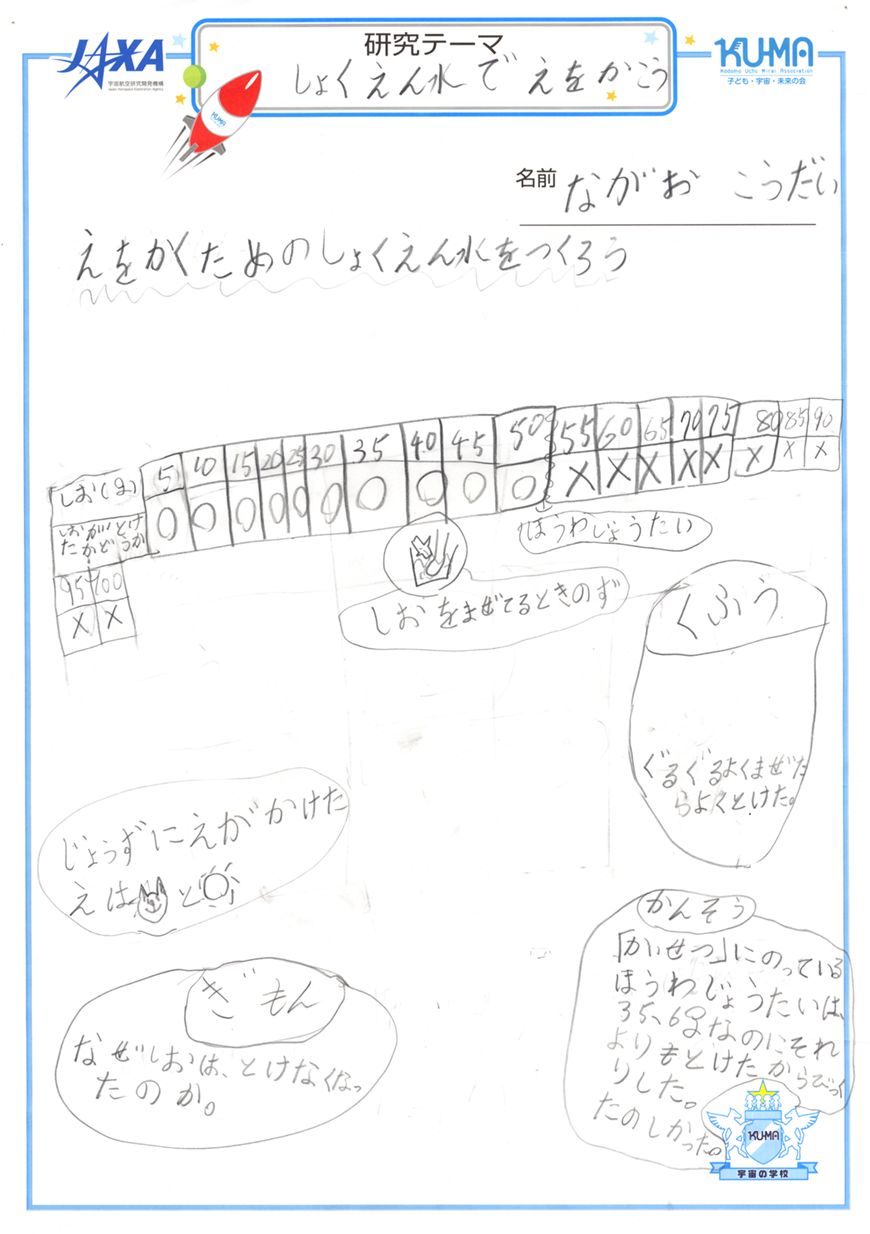 JAXA
宇宙航空研究開発機構
Japan Aerospace Exploration Agency
研究テーマ
しょくえん水でえをかこう
KU-MA
Kodomo Uchu Mirai Association
子ども・宇宙・未来の会
KUMA
名前 ながお こうだい
えをかくためのしょくえん水をつくろう
しお(g) 5 10 15 20 25 30 35 40 45 50 55 60 65 70 75 80 85 90
しおがとけ
たかどうか
○ ○ ○ ○ ○ ○ ○ ○ ○ ○ × × × × × × × ×
95 100
× ×
ほうわじょうたい
しおをまぜてるときのず
くふう
ぐるぐるよくまぜた
らよくとけた。
じょうずにえがかけた
えは と
かんそう
「かいせつ」にのっている
ほうわじょうたいは、
35、6gなのにそれ
よりもとけたからびっく
りした。
たのしかった。
ぎもん
なぜしおは、とけなくなっ
たのか。
KUMA
宇宙の学校